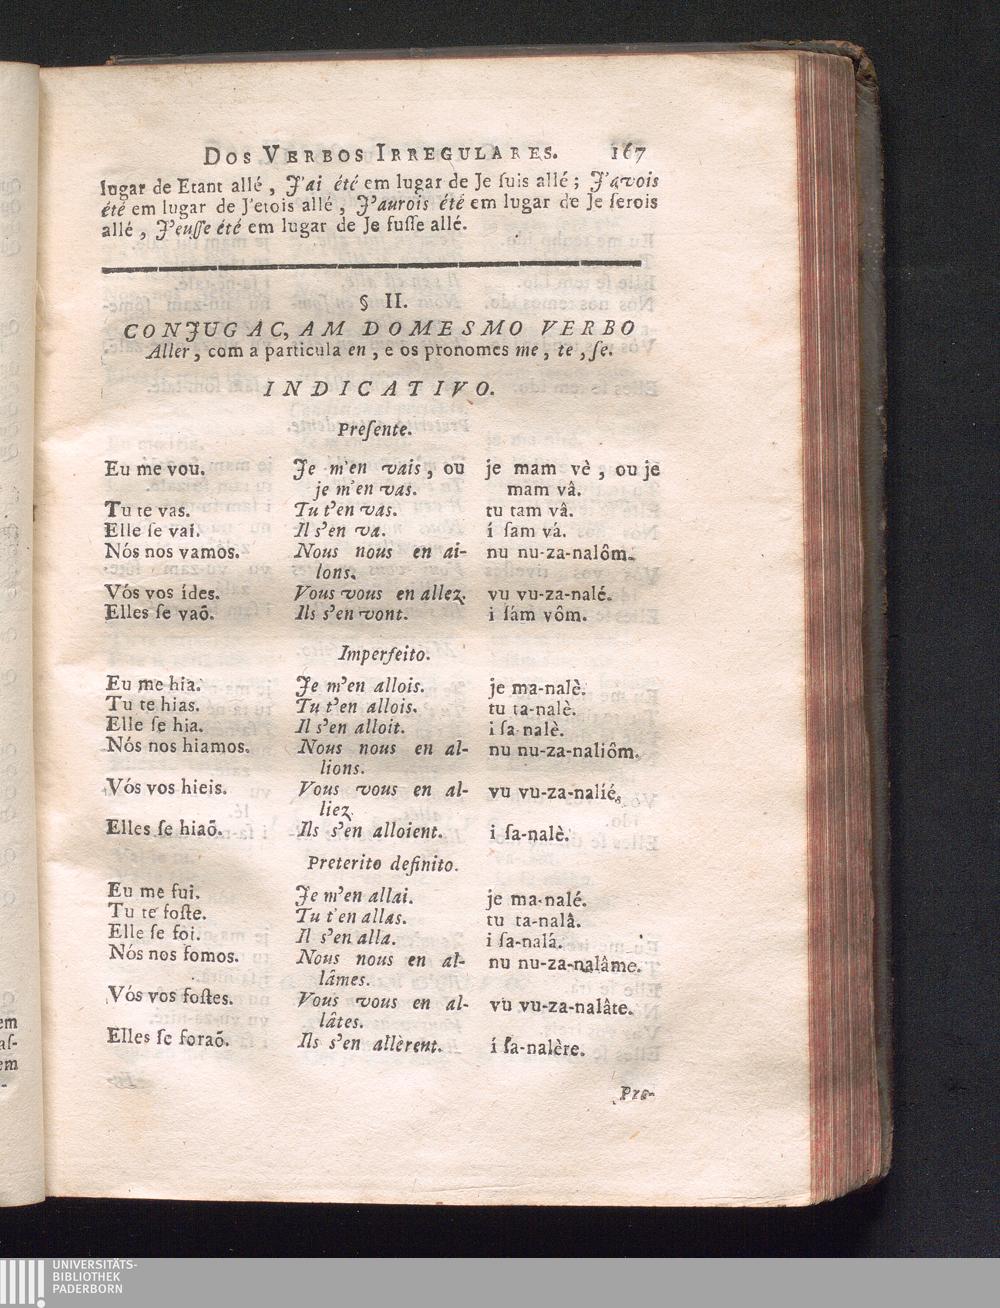 DOS VERBOS IRREGULARES. 167
lugar de Etant allé, J'ai été em lugar de Je ſuis allé; J'avois
été em lugar de J'etois allé, J'aurois été em lugar de Je ſerois
allé, J'euſſe été em lugar de Je fuſſe allé.
§ II.
CONJUGAC,AM DO MESMO VERBO
Aller, com a particula en, e os pronomes me, te, ſe.
INDICATIVO.
Preſente.
Eu me vou. Je m'en vais, ou je mam vè, ou je
je m'en vas. mam vâ.
Tu te vas. Tu t'en vas. tu tam vâ.
Elle ſe vai. Il s'en va. í ſam vá.
Nós nos vamos. Nous nous en al- nu nu-za-nalôm.
lons.
Vós vos ídes. Vous vous en allez. vu vu-za-nalé.
Elles ſe vaõ. Ils s'en vont. i ſám vôm.
Imperfeito.
Eu me hia. Je m'en allois. je ma-nalè.
Tu te hias. Tu t'en allois. tu ta-nalè.
Elle ſe hia. Il s'en alloit. i ſa nalè.
Nós nos hiamos. Nous nous en al- nu nu-za-naliôm.
lions.
Vós vos hieis. Vous vous en al- vu vu-za-nalíé.
liez.
Elles ſe hiaõ. Ils s'en alloient. i ſa-nalè.
Preterito definito.
Eu me fui. Je m'en allai. je ma-nalé.
Tu te foſte. Tu t'en allas. tu ta-nalâ.
Elle ſe foi. Il s'en alla. i ſa-nalá.
Nós nos fomos. Nous nous en al- nu nu-za-nalâme.
lâmes.
Vós vos foſtes. Vous vous en al- vu vu-za-nalâte.
lâtes.
Elles ſe foraõ. Ils s'en allèrent. í ſa-nalère.
Pre-
em
aſ-
em
-
UNIVERSITÄTS-
BIBLIOTHEK
PADERBORN